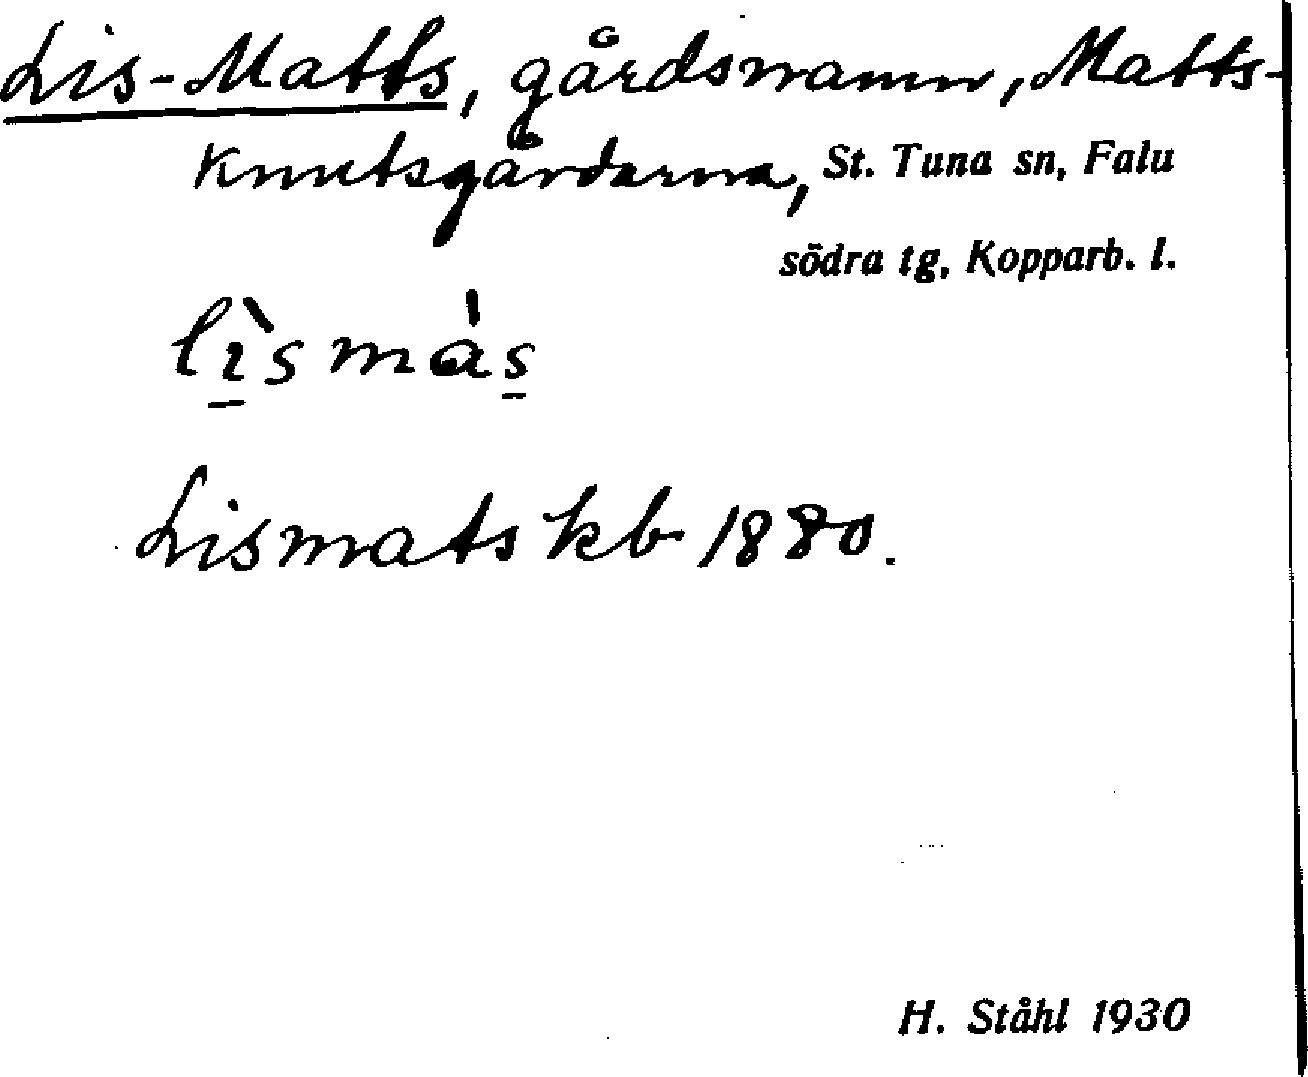 Lis-Matts, gårdsnamn, Matts-
Knutsgårdarna, St. Tuna sn, Falu
södra tg, Kopparb. l.
lı̠̀smàs̠
Lismats kb 1880.
H. Ståhl 1930